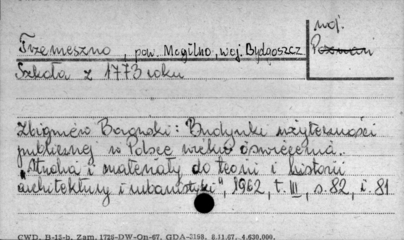 Trzemeszno, pow. Mogilno, woj. Bydgoszcz
woj.
Poznań
Szkoła z 1773 roku
Zbigniew Barański: Budynki użyteczności
publicznej w Polsce wieku oświecenia.
"Studia i materiały do teorii i historii
architektury i urbanistyki", 1962, t. III, s. 82, i. 81
CWD. B-12-b. Zam. 1726-DW-Qn-67. GDA-2198. 8.11.67. 4.630.000.